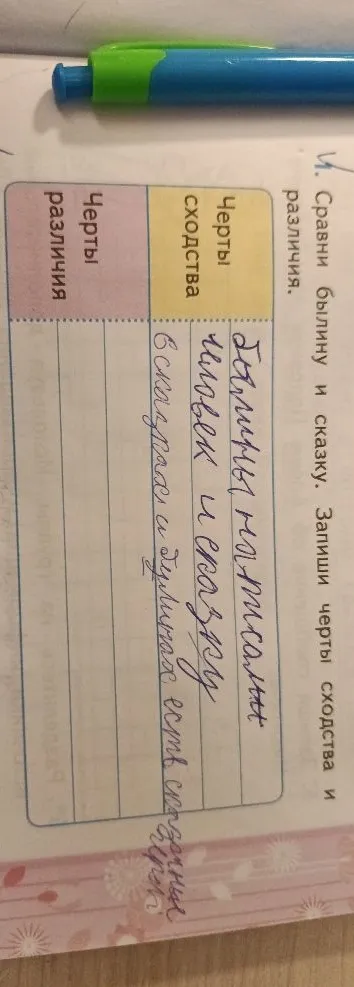 И. Сравни былину и сказку. Запиши черты сходства и
различия.
Черты
сходства
былины написал
человек и сказку
в сказках и былинах есть сказочные
герои
Черты
различия